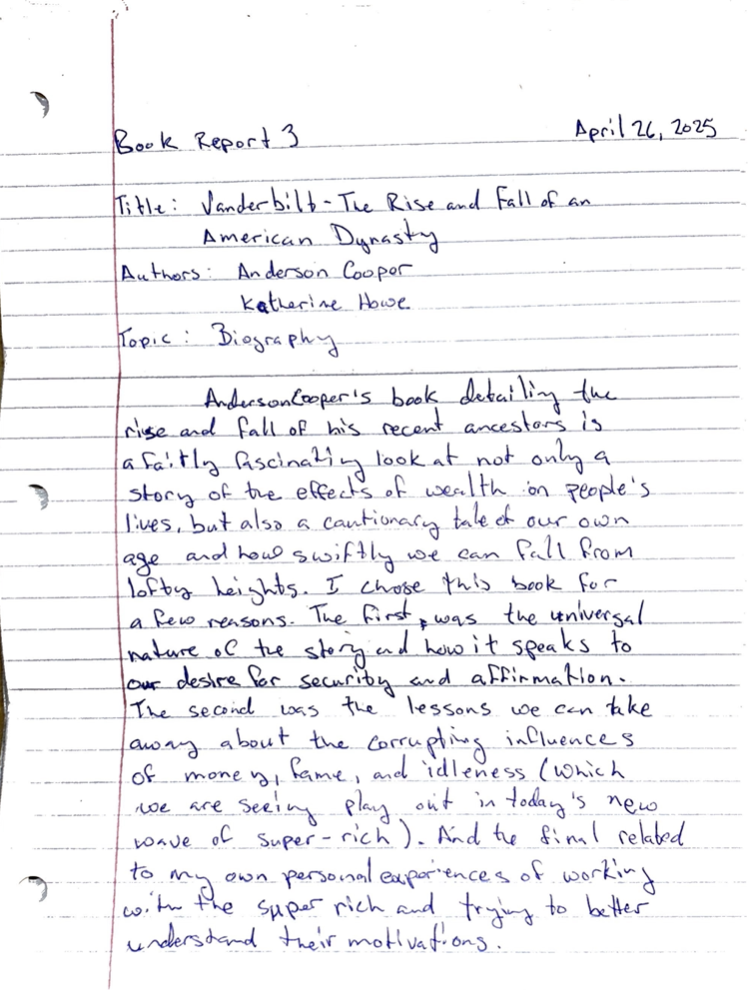 Book Report 3
April 26, 2025
Title: Vanderbilt - The Rise and Fall of an
American Dynasty
Authors: Anderson Cooper
Katherine Howe
Topic: Biography
Anderson Cooper's book detailing the
rise and fall of his recent ancestors is
a fairly fascinating look at not only a
story of the effects of wealth on people's
lives, but also a cautionary tale of our own
age and how swiftly we can fall from
lofty heights. I chose this book for
a few reasons. The first, was the universal
nature of the story and how it speaks to
our desire for security and affirmation.
The second was the lessons we can take
away about the corrupting influences
of money, fame, and idleness (which
we are seeing play out in today's new
wave of super-rich). And the final related
to my own personal experiences of working
with the super rich and trying to better
understand their motivations.